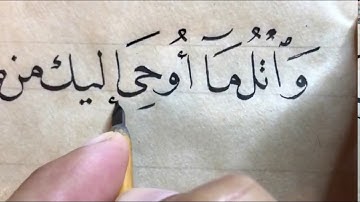 وَٱتْلُ مَآ أُوحِيَ إليك من